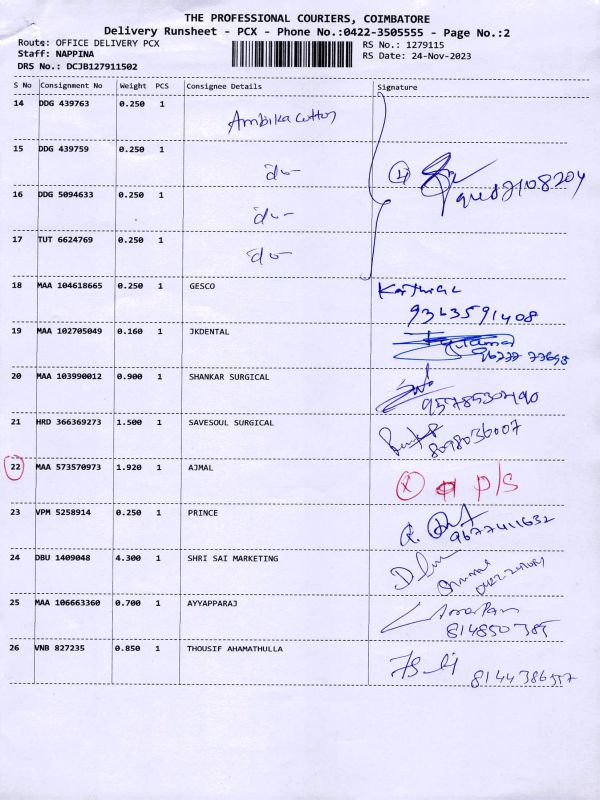 THE PROFESSIONAL COURIERS, COIMBATORE
Delivery Runsheet - PCX - Phone No.:0422-3505555 - Page No.:2
Route: OFFICE DELIVERY PCX RS No.: 1279115
Staff: NAPPINA RS Date: 24-Nov-2023
DRS No.: DCJB127911502
S No Consignment No Weight PCS Consignee Details Signature
14 DDG 439763 0.250 1 Ambika cotton
15 DDG 439759 0.250 1 do
16 DDG 5094633 0.250 1 do
17 TUT 6624769 0.250 1 do
18 MAA 104618665 0.250 1 GESCO
9363591408
19 MAA 102705049 0.160 1 JKDENTAL
96777 77698
20 MAA 103990012 0.900 1 SHANKAR SURGICAL
21 HRD 366369273 1.500 1 SAVESOUL SURGICAL
8098036007
22 MAA 573570973 1.920 1 AJMAL X P/S
23 VPM 5258914 0.250 1 PRINCE
9677411632
24 DBU 1409048 4.300 1 SHRI SAI MARKETING
25 MAA 106663360 0.700 1 AYYAPPARAJ
26 VNB 827235 0.850 1 THOUSIF AHAMATHULLA
8144386557